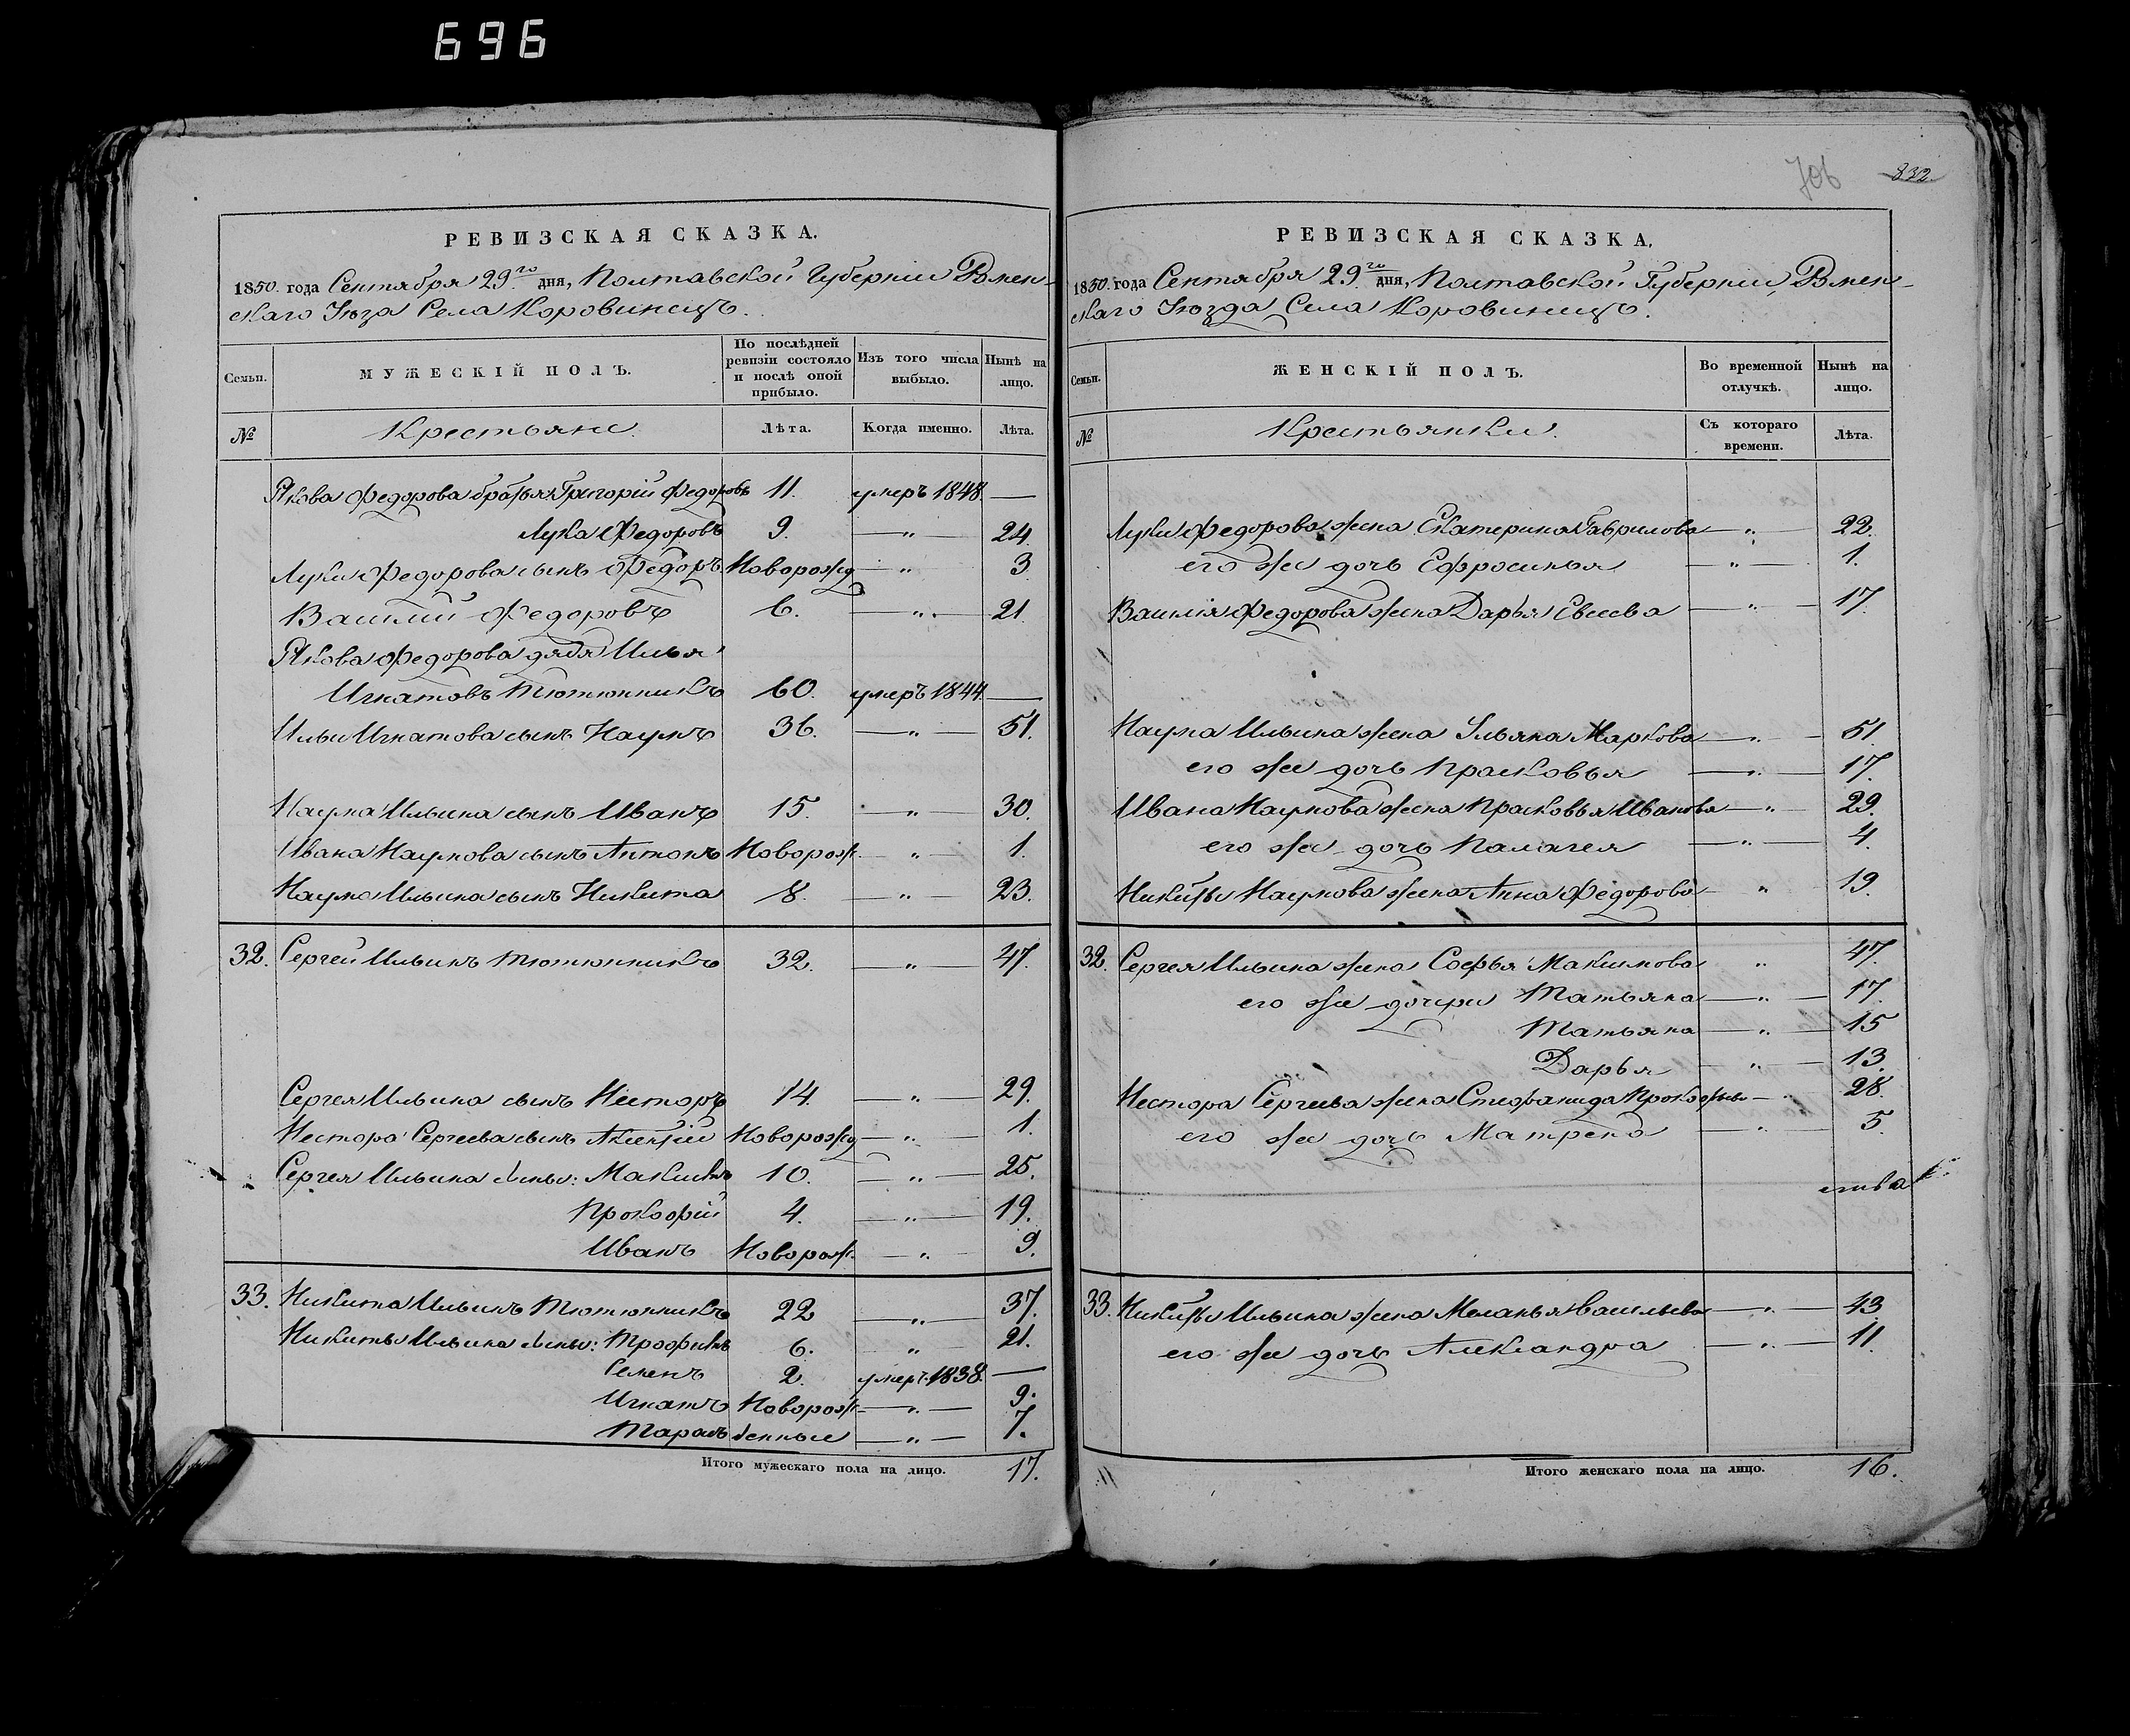 696
РЕВИЗСКАЯ СКАЗКА.
1850. года Сентября 29го дня, Полтавской Губерніи Ромен-
скаго Уезда Села Коровинецъ.
Семьи.
МУЖЕСКІЙ ПОЛЪ.
По послѣдней ревизіи состояло и послѣ оной прибыло.
Изъ того числа выбыло.
Нынѣ на лицо.
№
Крестьяне.
Лѣта.
Когда именно.
Лѣта.
Якова Федорова братья: Григорій Федоровъ 11. умеръ 1848. —
Лука Федоровъ 9. — „ — 24.
Луки Федорова сынъ Федоръ Новорожд — „ — 3
Василий Федоровъ 6. — „ — 21.
Якова Федорова дядя Илья
Игнатовъ Тютюнникъ 60. умеръ 1844. —
Ильи Игнатова сынъ Наумъ 36. — „ — 51.
Наума Ильина сынъ Иванъ 15. — „ — 30.
Ивана Наумова сынъ Антонъ Новорож. — „ — 1.
Наума Ильина сынъ Никита 8. — „ — 23.
32. Сергей Ильинъ Тютюнникъ 32. — „ — 47.
Сергея Ильина сынъ Несторъ 14. — „ — 29.
Нестора Сергеева сынъ Алексѣй Новорожд — „ — 1.
Сергея Ильина сыны: Максимъ 10. — „ — 25.
Прокофій 4. — „ — 19.
Иванъ Новорож. — „ — 9.
33. Никита Ильинъ Тютюнникъ 22 — „ — 37.
Никиты Ильина сыны: Трофимъ 6. „ 21.
Семенъ 2. умеръ 1838. —
Игнатъ Новорож- — „ — 9.
Тарасъ денные — „ — 7.
Итого мужескаго пола на лицо. 17.
706
832
РЕВИЗСКАЯ СКАЗКА.
1850. года Сентября 29го дня, Полтавской Губерніи, Ромен-
скаго Уезда Села Коровинецъ.
Семьи.
ЖЕНСКІЙ ПОЛЪ.
Во временной отлучкѣ.
Нынѣ на лицо.
№
Крестьянки.
Съ котораго времени.
Лѣта.
Луки Федорова жена Екатерина Гаврилова — „ — 22.
его же дочь Ефросинья — „ — 1.
Василія Федорова жена Дарья Евсеева — „ — 17.
Наума Ильина жена Ульяна Маркова — „ — 51
его же дочь Прасковья — „ — 17.
Ивана Наумова жена Прасковья Иванова — „ — 29.
его же дочь Палагея — „ — 4.
Никиты Наумова жена Анна Федорова — „ 19.
32. Сергея Ильина жена Софья Максимова „ 47.
его же дочери Татьяна — „ — 17.
Татьяна — „ — 15
Дарья — „ — 13.
Нестора Сергеева жена Стефанида Прокофьева — „ — 28.
его же дочь Матрена — „ — 5.
33. Никиты Ильина жена Меланья Васильева — „ — 43
его же дочь Александра — „ — 11.
Итого женскаго пола на лицо. 16.